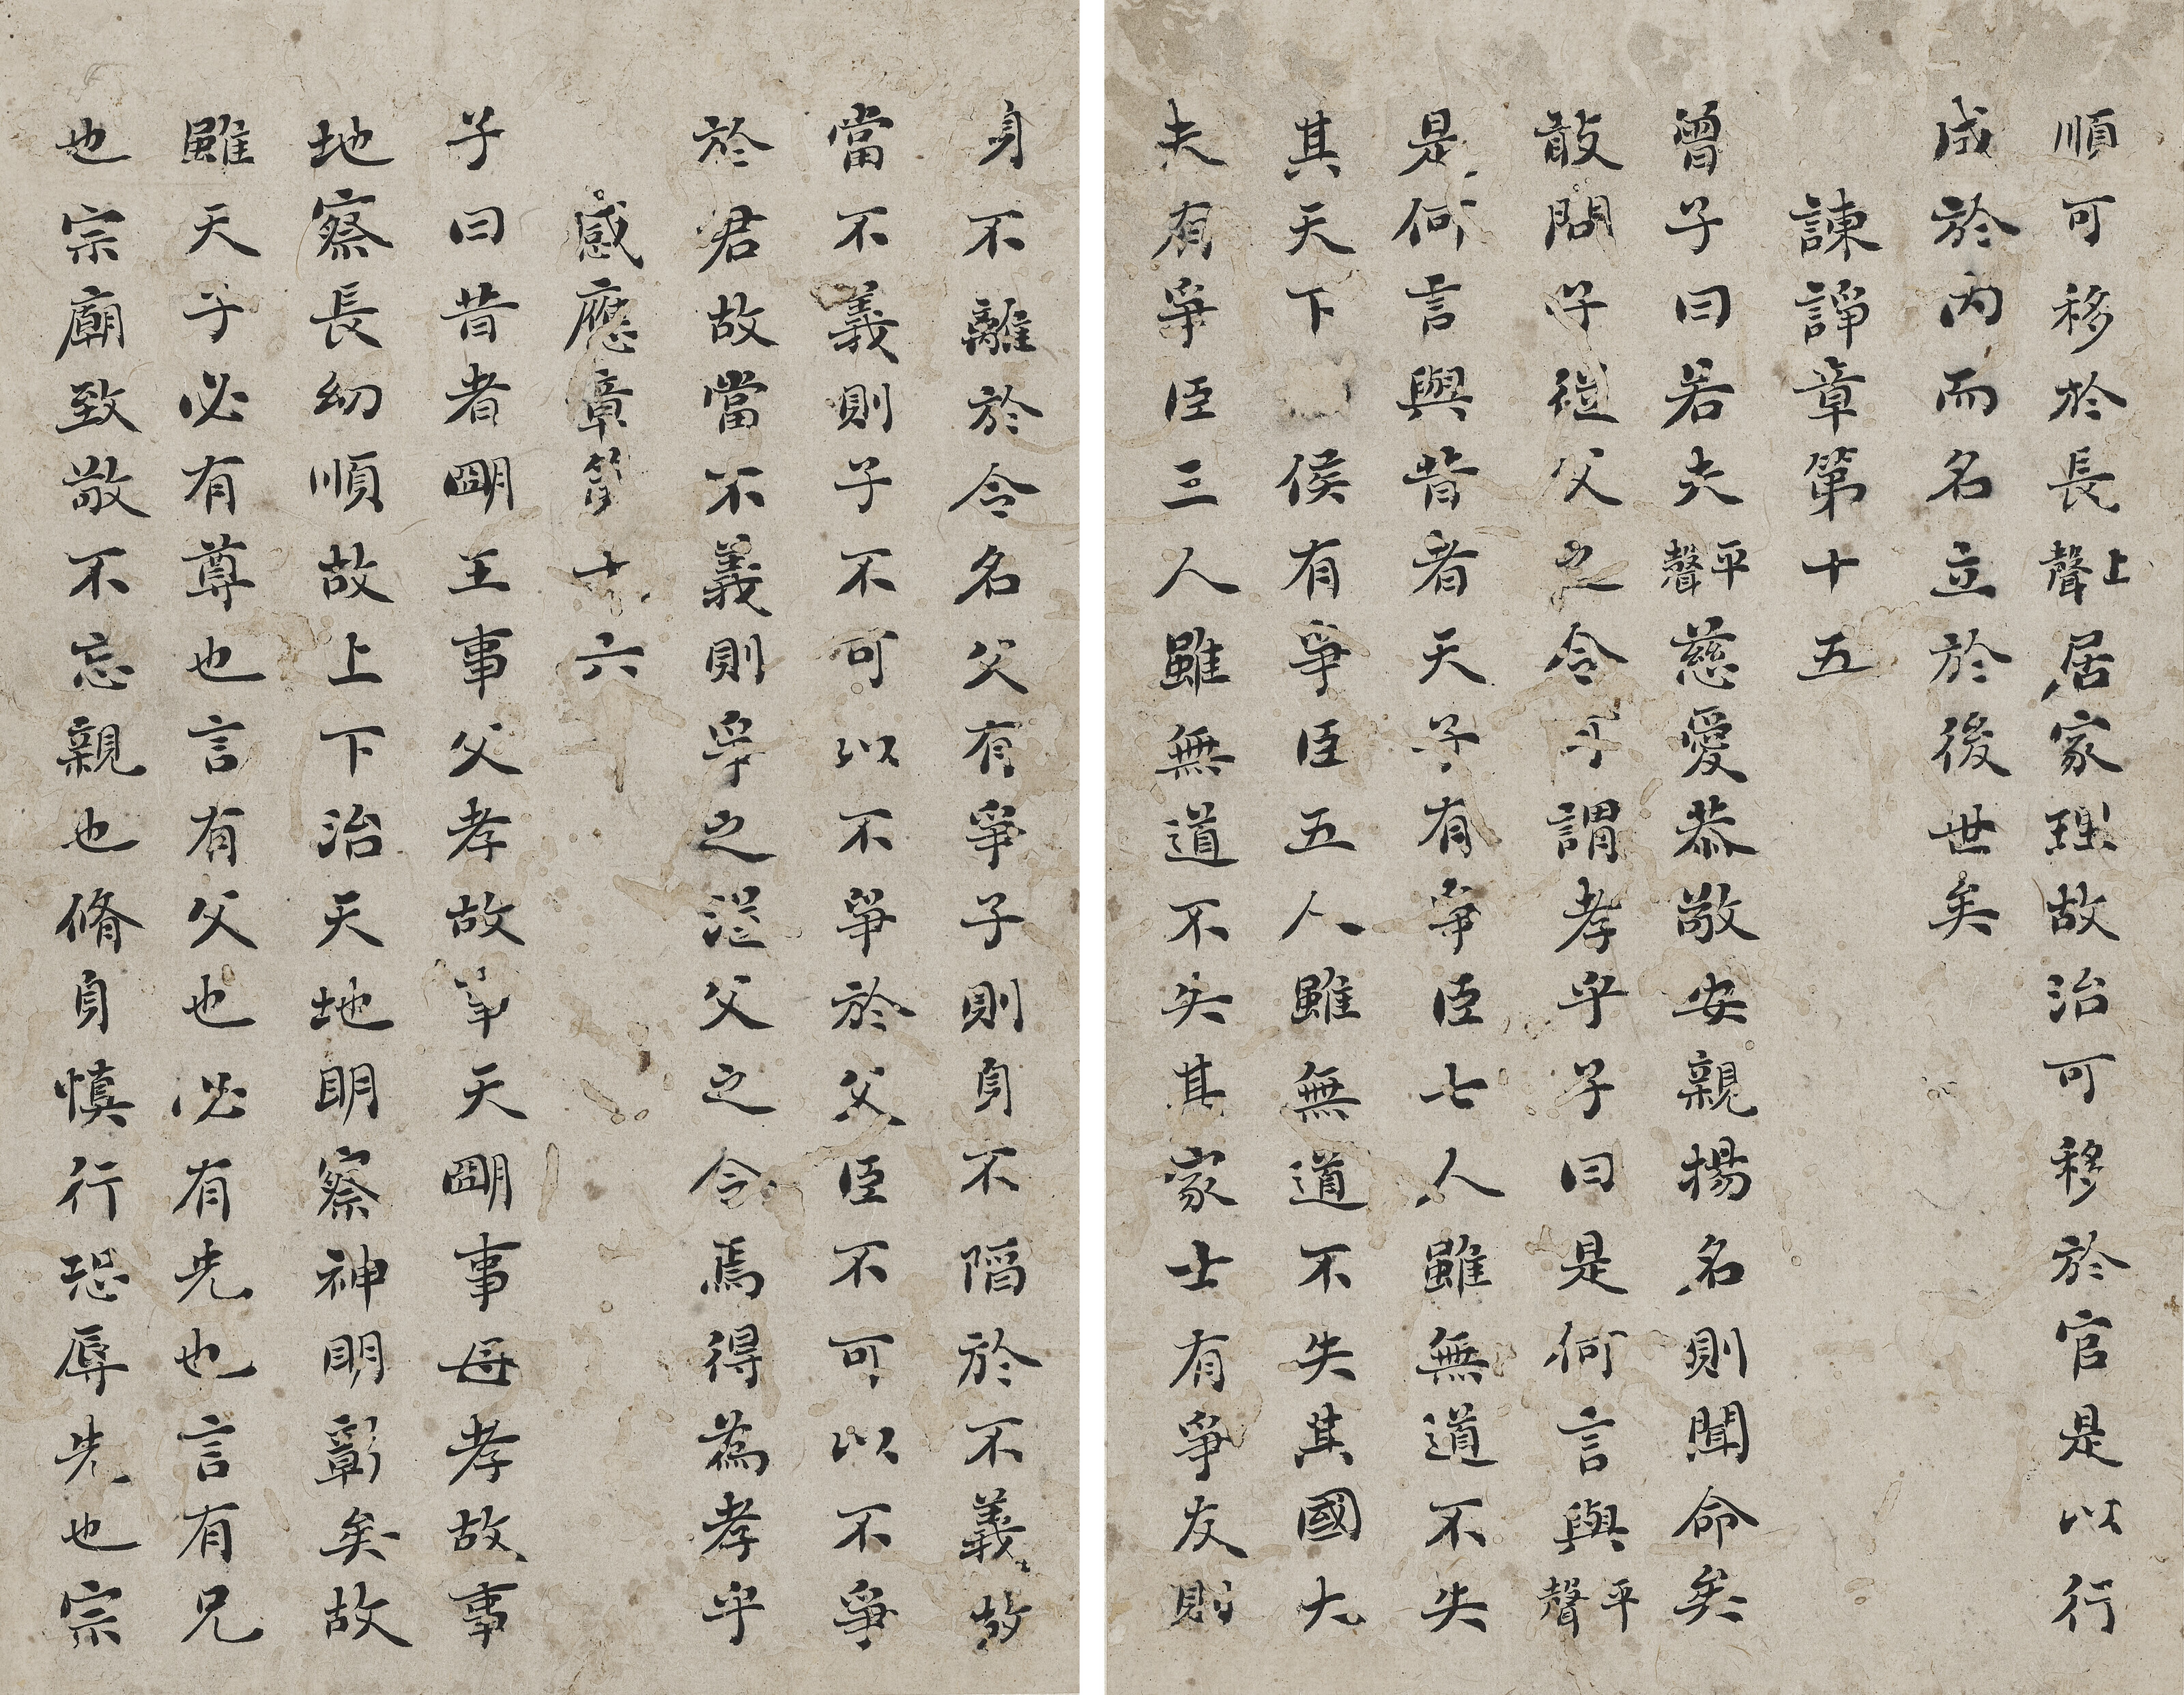 順可移於長上聲居家理故治可移於官是以行
成於內而名立於後世矣
諫諍章第十五
曾子曰若夫平聲慈愛恭敬安親揚名則聞命矣
敢問子從父之令可謂孝乎子曰是何言與平聲
是何言與昔者天子有爭臣七人雖無道不失
其天下侯有爭臣五人雖無道不失其國大
夫有爭臣三人雖無道不失其家士有爭友則
身不離於令名父有爭子則身不陷於不義故
當不義則子不可以不爭於父臣不可以不爭
於君故當不義則爭之從父之令焉得為孝乎
感應章第十六
子曰昔者朙王事父孝故事天朙事母孝故事
地察長幼順故上下治天地明察神明彰矣故
雖天子必有尊也言有父也必有先也言有兄
也宗廟致敬不忘親也脩身慎行恐辱先也宗